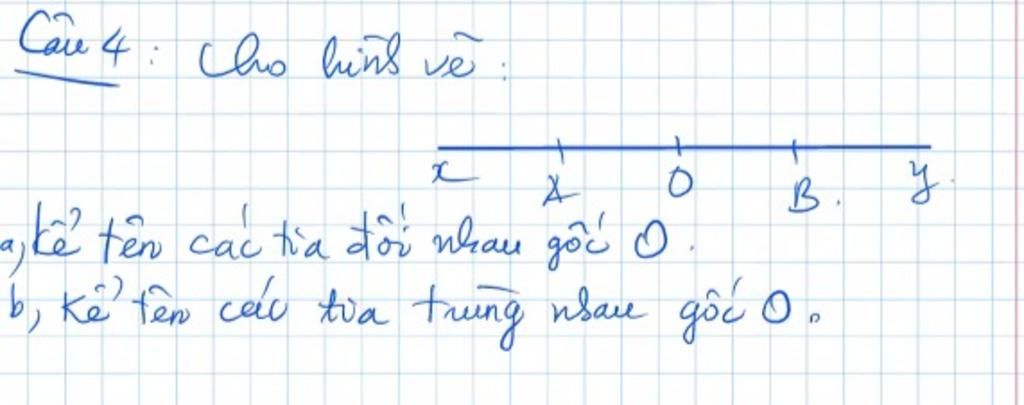 Câu 4: Cho hình vẽ:
x A O B y
a, kể tên các tia đối nhau gốc O.
b, kể tên các tia trùng nhau gốc O.